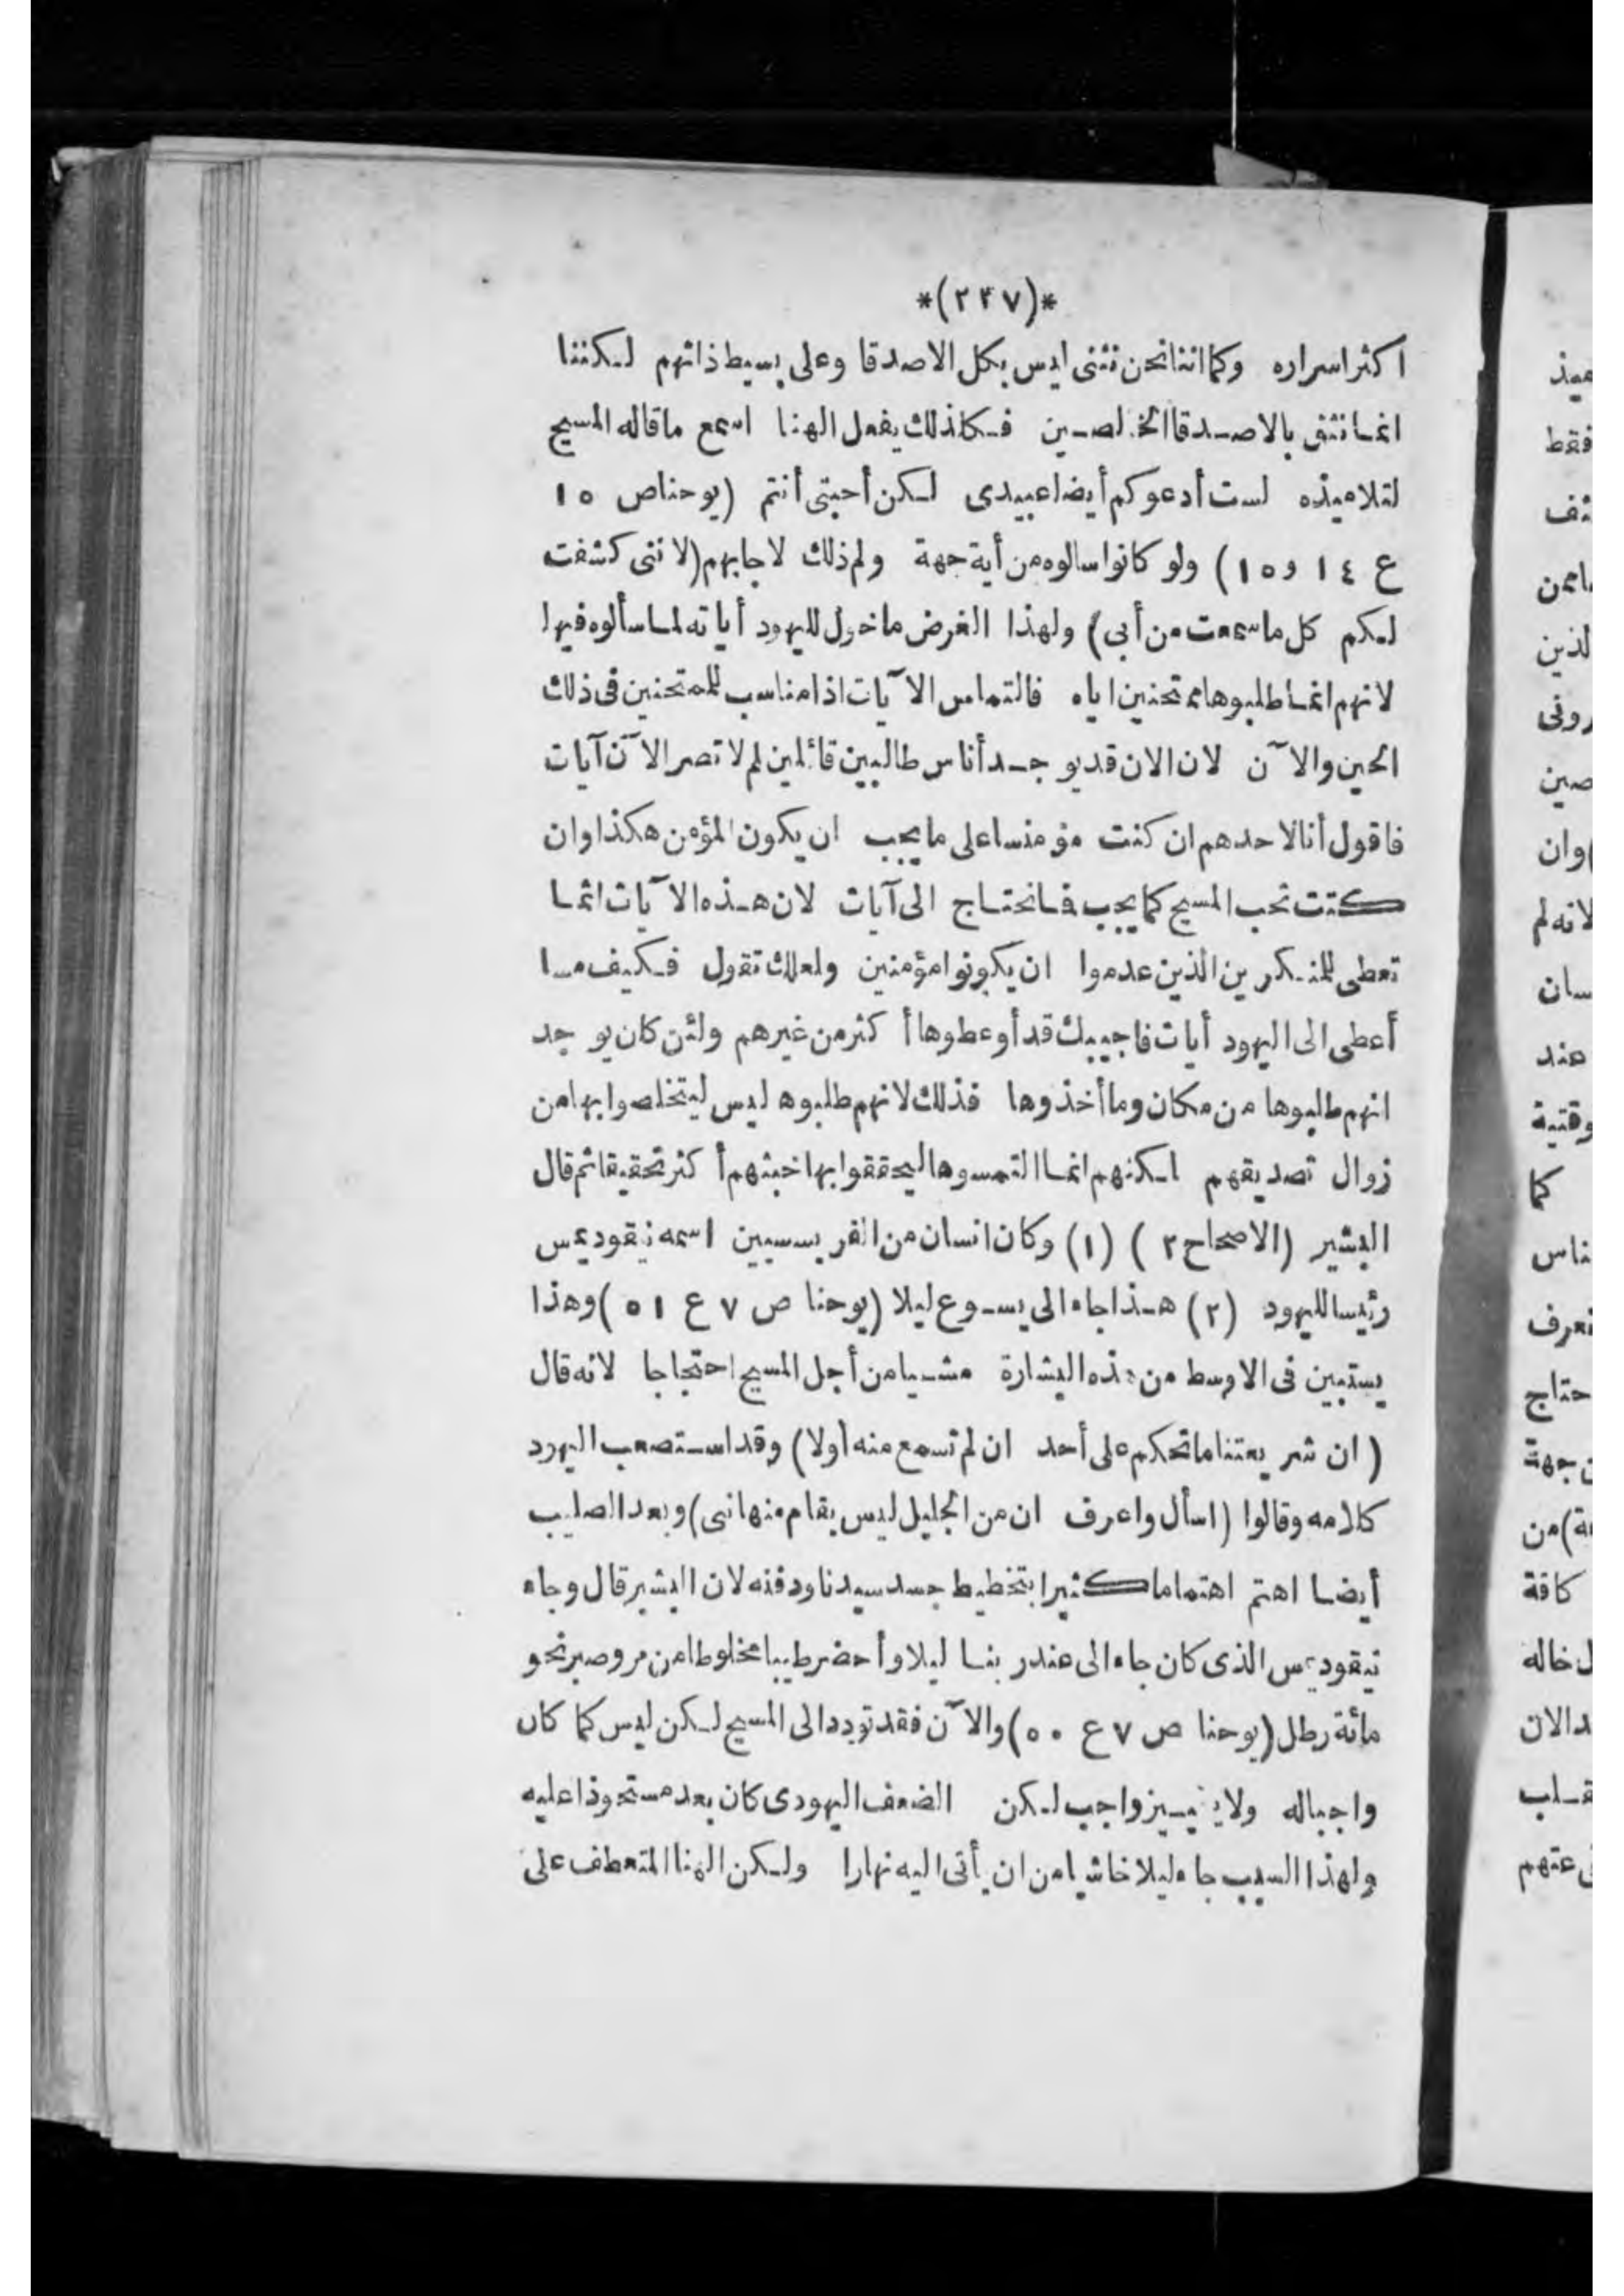 *(٢٣٧)*
اكثر اسراره وكما اننا نحن نثنى ليس بكل الاصدقا وعلى بسيط ذاتهم لكننا
انما نثق بالاصدقا المخلصين فكاذلك يفعل الهنا اسمع ما قاله المسيح
لتلاميذه لست أدعوكم أيضا عبيدى لكن أحبتى أنتم (يوحنا ص ١٥
ع ١٤ و ١٥) ولو كانوا سالوه من أية جهة ولم ذلك لاجابهم (لاننى كشفت
لكم كل ما سمعت من أبى) ولهذا الغرض ما خول لليهود أياته لما سألوه فيها
لانهم انما طلبوها ممتحنين اياه فالتماس الآيات اذا مناسب للممتحنين فى ذلك
الحين والآن لان الان قد يوجد أناس طالبين قائلين لم لا تصر الآن آيات
فاقول أنا لاحدهم ان كنت مؤمنا على ما يجب ان يكون المؤمن هكذا وان
كنت تحب المسيح كما يجب فما نحتاج الى آيات لان هذه الآيات انما
تعطى للمنكرين الذين عدموا ان يكونوا مؤمنين ولعلك تقول فكيف ما
أعطى الى اليهود أيات فاجيبك قد أوعطوها أكثر من غيرهم ولئن كان يوجد
انهم طلبوها من مكان وما أخذوها فذلك لانهم طلبوها ليس ليتخلصوا بها من
زوال تصديقهم لكنهم انما التمسوها ليحققوا بها خبثهم أكثر تحقيقا ثم قال
البشير (الاصحاح ٣) (١) وكان انسان من الفريسيين اسمه نيقوديمس
رئيسا لليهود (٢) هذا جاء الى يسوع ليلا (يوحنا ص ٧ ع ٥١) وهذا
يستبين فى الاوسط من هذه البشارة مشيا من أجل المسيح احتجاجا لانه قال
(ان شريعتنا ما تحكم على أحد ان لم تسمع منه أولا) وقد استصعب اليهود
كلامه وقالوا (اسأل واعرف ان من الجليل ليس يقام منها نبى) وبعد الصليب
أيضا اهتم اهتماما كثيرا بتخطيط جسد سيدنا ودفنه لان البشير قال وجاء
نيقوديمس الذى كان جاء الى عند ربنا ليلا وأحضر طيبا مخلوطا من مر وصبر نحو
مائة رطل (يوحنا ص ٧ ع ٥٠) والآن فقد تودد الى المسيح لكن ليس كما كان
واجبا له ولا واجب لكن الضعف اليهودى كان بعد مستحوذا عليه
ولهذا السبب جاء ليلا خاشيا من ان يأتى اليه نهارا ولكن الهنا المتعطف على